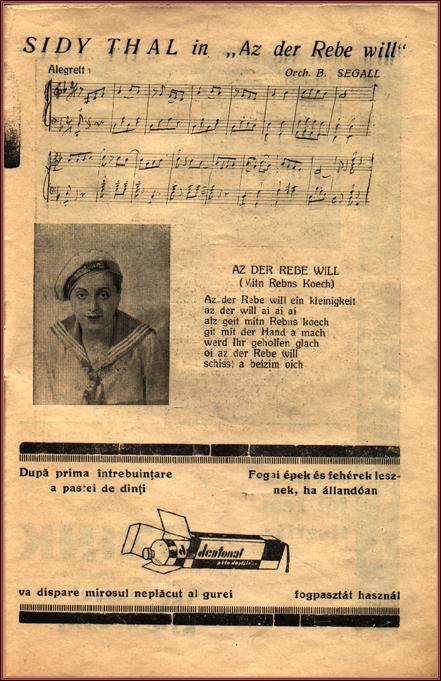 SIDY THAL in „Az der Rebe will“
Alegrett
Orch. B. SEGALL
AZ DER REBE WILL
(Mitn Rebns Koech)
Az der Rebe will ein kleinigkeit
az der will ai ai ai
alz geit mitn Rebns koech
git mit der Hand a mach
werd Ihr geholfen glach
oi az der Rebe will
schisst a beizim oich
După prima întrebuințare
a pastei de dinți
Fogai épek és fehérek lesz-
nek, ha állandóan
dentonal
va dispare mirosul neplăcut al gurei
fogpasztát használ